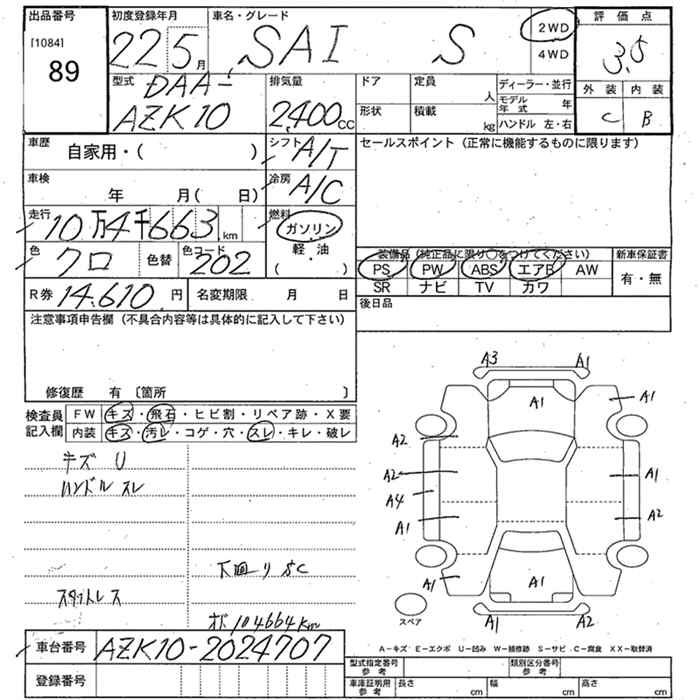 出品番号
[1084]
89
初度登録年月
22 5 月
車名・グレード
SAI S
2WD
4WD
評価点
3.5
外装 内装
C B
型式
DAA-
AZK10
排気量
2,400 CC
ドア
定員
人
形状
積載
kg
ディーラー・並行
モデル年式 年
ハンドル 左・右
車歴
自家用・( )
シフト
A/T
セールスポイント (正常に機能するものに限ります)
車検
年 月( 日)
冷房
A/C
走行
10万4千663 km
燃料
ガソリン
軽・油
( )
色
クロ
色替
色コード
202
装備品 (純正品に限り○をつけてください)
新車保証書
PS PW ABS エアB AW
有・無
SR ナビ TV カワ
R券 14,610 円
名変期限 月 日
後日品
注意事項申告欄 (不具合内容等は具体的に記入して下さい)
修復歴 有 〔箇所 〕
検査員記入欄
FW キズ・飛石・ヒビ割・リペア跡・X要
内装 キズ・汚レ・コゲ・穴・スレ・キレ・破レ
キズ U
ハンドル スレ
下廻り サC
スタットレス
オド 104664km
A3 A1
A1
A1
A2
A2
A1
A4
A1
A2
A1
A1
A1
A1 A2
スペア
車台番号 AZK10-2024707
A-キズ E-エクボ U-凹み W-補修跡 S-サビ C-腐食 XX-取替済
登録番号
型式指定番号 参考
類別区分番号 参考
車庫証明用 参考
長さ cm
幅 cm
高さ cm